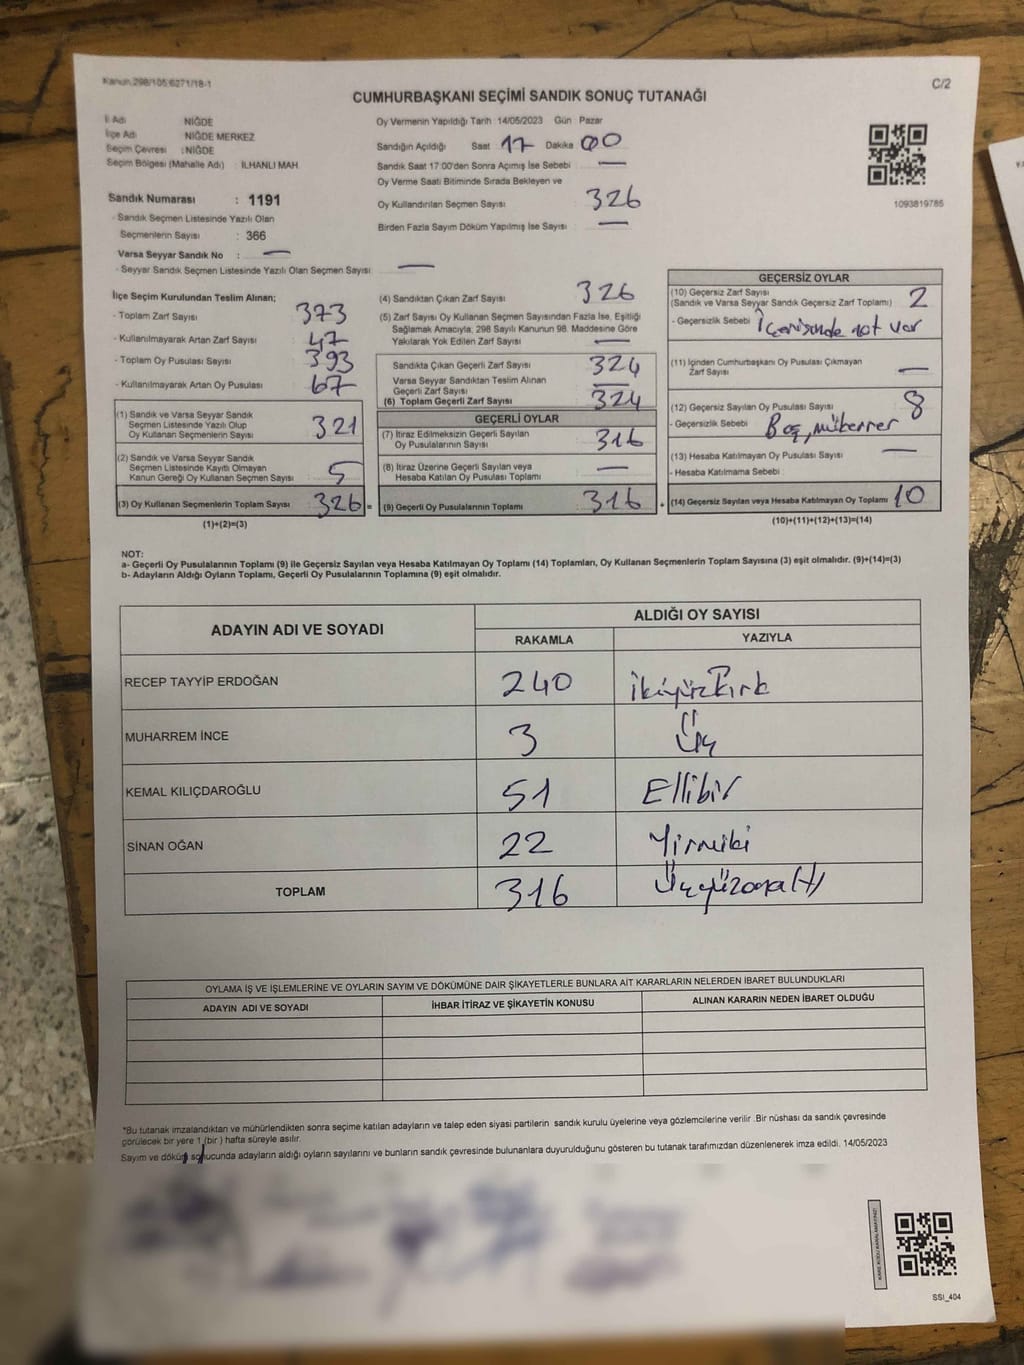 Kanun.298/105.6271/18-1
C/2
CUMHURBAŞKANI SEÇİMİ SANDIK SONUÇ TUTANAĞI
İl Adı NİĞDE
İlçe Adı NİĞDE MERKEZ
Seçim Çevresi :NİĞDE
Seçim Bölgesi (Mahalle Adı) : İLHANLI MAH.
Sandık Numarası : 1191
- Sandık Seçmen Listesinde Yazılı Olan
Seçmenlerin Sayısı : 366
Varsa Seyyar Sandık No : —
- Seyyar Sandık Seçmen Listesinde Yazılı Olan Seçmen Sayısı: —
Oy Vermenin Yapıldığı Tarih 14/05/2023 Gün Pazar
Sandığın Açıldığı Saat 17 Dakika 00
Sandık Saat 17:00'den Sonra Açımış İse Sebebi : —
Oy Verme Saati Bitiminde Sırada Bekleyen ve
Oy Kullandırılan Seçmen Sayısı : 326
Birden Fazla Sayım Döküm Yapılmış İse Sayısı : —
1093819785
İlçe Seçim Kurulundan Teslim Alınan;
- Toplam Zarf Sayısı : 373
- Kullanılmayarak Artan Zarf Sayısı : 47
- Toplam Oy Pusulası Sayısı : 393
- Kullanılmayarak Artan Oy Pusulası : 67
(1) Sandık ve Varsa Seyyar Sandık
Seçmen Listesinde Yazılı Olup
Oy Kullanan Seçmenlerin Sayısı : 321
(2) Sandık ve Varsa Seyyar Sandık
Seçmen Listesinde Kayıtlı Olmayan
Kanun Gereği Oy Kullanan Seçmen Sayısı : 5
(3) Oy Kullanan Seçmenlerin Toplam Sayısı : 326 =
(1)+(2)=(3)
(4) Sandıktan Çıkan Zarf Sayısı : 326
(5) Zarf Sayısı Oy Kullanan Seçmen Sayısından Fazla İse, Eşitliği
Sağlamak Amacıyla; 298 Sayılı Kanunun 98. Maddesine Göre
Yakılarak Yok Edilen Zarf Sayısı : —
Sandıkta Çıkan Geçerli Zarf Sayısı : 324
Varsa Seyyar Sandıktan Teslim Alınan
Geçerli Zarf Sayısı : —
(6) Toplam Geçerli Zarf Sayısı : 324
GEÇERLİ OYLAR
(7) İtiraz Edilmeksizin Geçerli Sayılan
Oy Pusulalarının Sayısı : 316
(8) İtiraz Üzerine Geçerli Sayılan veya
Hesaba Katılan Oy Pusulası Toplamı : —
(9) Geçerli Oy Pusulalarının Toplamı : 316 +
GEÇERSİZ OYLAR
(10) Geçersiz Zarf Sayısı
(Sandık ve Varsa Seyyar Sandık Geçersiz Zarf Toplamı) : 2
- Geçersizlik Sebebi : İçerisinde not var
(11) İçinden Cumhurbaşkanı Oy Pusulası Çıkmayan
Zarf Sayısı : —
(12) Geçersiz Sayılan Oy Pusulası Sayısı : 8
- Geçersizlik Sebebi : Boş, mükerrer
(13) Hesaba Katılmayan Oy Pusulası Sayısı : —
- Hesaba Katılmama Sebebi :
(14) Geçersiz Sayılan veya Hesaba Katılmayan Oy Toplamı : 10
(10)+(11)+(12)+(13)=(14)
NOT:
a- Geçerli Oy Pusulalarının Toplamı (9) ile Geçersiz Sayılan veya Hesaba Katılmayan Oy Toplamı (14) Toplamları, Oy Kullanan Seçmenlerin Toplam Sayısına (3) eşit olmalıdır. (9)+(14)=(3)
b- Adayların Aldığı Oyların Toplamı, Geçerli Oy Pusulalarının Toplamına (9) eşit olmalıdır.
ADAYIN ADI VE SOYADI ALDIĞI OY SAYISI
RAKAMLA YAZIYLA
RECEP TAYYİP ERDOĞAN 240 İkiyüzkırk
MUHARREM İNCE 3 Üç
KEMAL KILIÇDAROĞLU 51 Ellibir
SİNAN OĞAN 22 Yirmiiki
TOPLAM 316 Üçyüzonaltı
OYLAMA İŞ VE İŞLEMLERİNE VE OYLARIN SAYIM VE DÖKÜMÜNE DAİR ŞİKAYETLERLE BUNLARA AİT KARARLARIN NELERDEN İBARET BULUNDUKLARI
ADAYIN ADI VE SOYADI İHBAR İTİRAZ VE ŞİKAYETİN KONUSU ALINAN KARARIN NEDEN İBARET OLDUĞU
*Bu tutanak imzalandıktan ve mühürlendikten sonra seçime katılan adayların ve talep eden siyasi partilerin sandık kurulu üyelerine veya gözlemcilerine verilir .Bir nüshası da sandık çevresinde
görülecek bir yere 1 (bir ) hafta süreyle asılır.
Sayım ve döküm sonucunda adayların aldığı oyların sayılarını ve bunların sandık çevresinde bulunanlara duyurulduğunu gösteren bu tutanak tarafımızdan düzenlenerek imza edildi. 14/05/2023
SSI_404